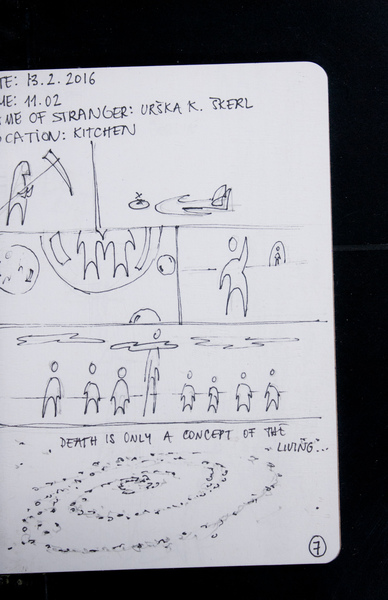 TE: 13.2.2016
ME: 11.02
ME OF STRANGER: URŠKA K. ŠKERL
OCATION: KITCHEN
DEATH IS ONLY A CONCEPT OF THE
LIVING...
7